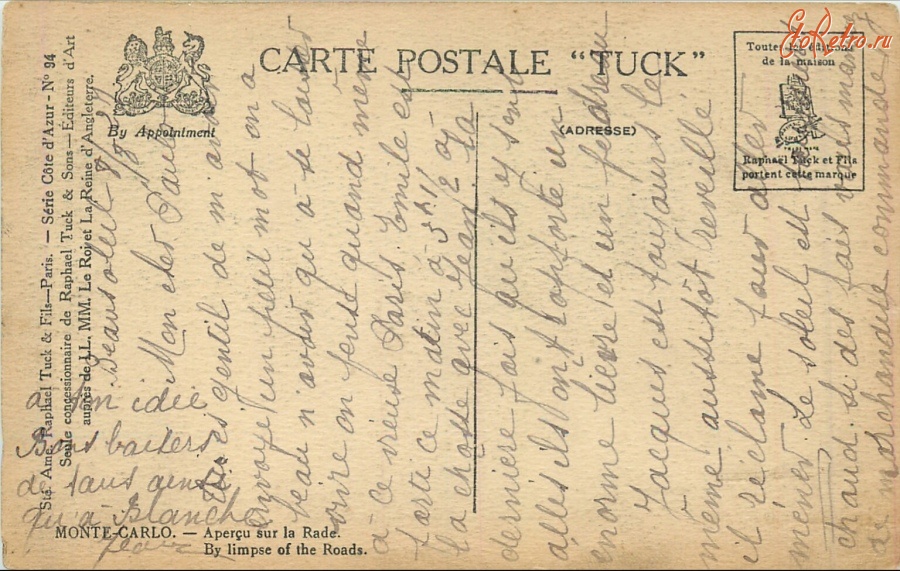 EtoRetro.ru
CARTE POSTALE "TUCK"
By Appointment
(ADRESSE)
Toutes les éditions
de la maison
Raphaël Tuck et Fils
portent cette marque
Sté. Ame. Raphael Tuck & Fils—Paris. — Série Côte d'Azur - No 94
Seule concessionnaire de Raphael Tuck & Sons—Editeurs d'Art
auprès de LL. MM. Le Roi et La Reine d'Angleterre.
MONTE-CARLO. — Aperçu sur la Rade.
By limpse of the Roads.
Beausoleil
Mon cher Paul
Tu es gentil de m'avoir
envoyé un petit mot on a
beau n'avoir qu'a se louer
voire on pense quand même
à ce vieux Paris. Emile est
parti ce matin à 5h 1/2 à
la chasse avec Jean. La
dernière fois qu'ils y sont
allés ils ont rapporté un
énorme lièvre et un
Jacques est toujours le
même aussitôt réveillé
il réclame pour aller
mener. Le soleil est
chaud si des fois vous manquez
de marchandise commandez
à ton idée
Bons baisers
de tous ainsi
qu'à Blanche
Jean